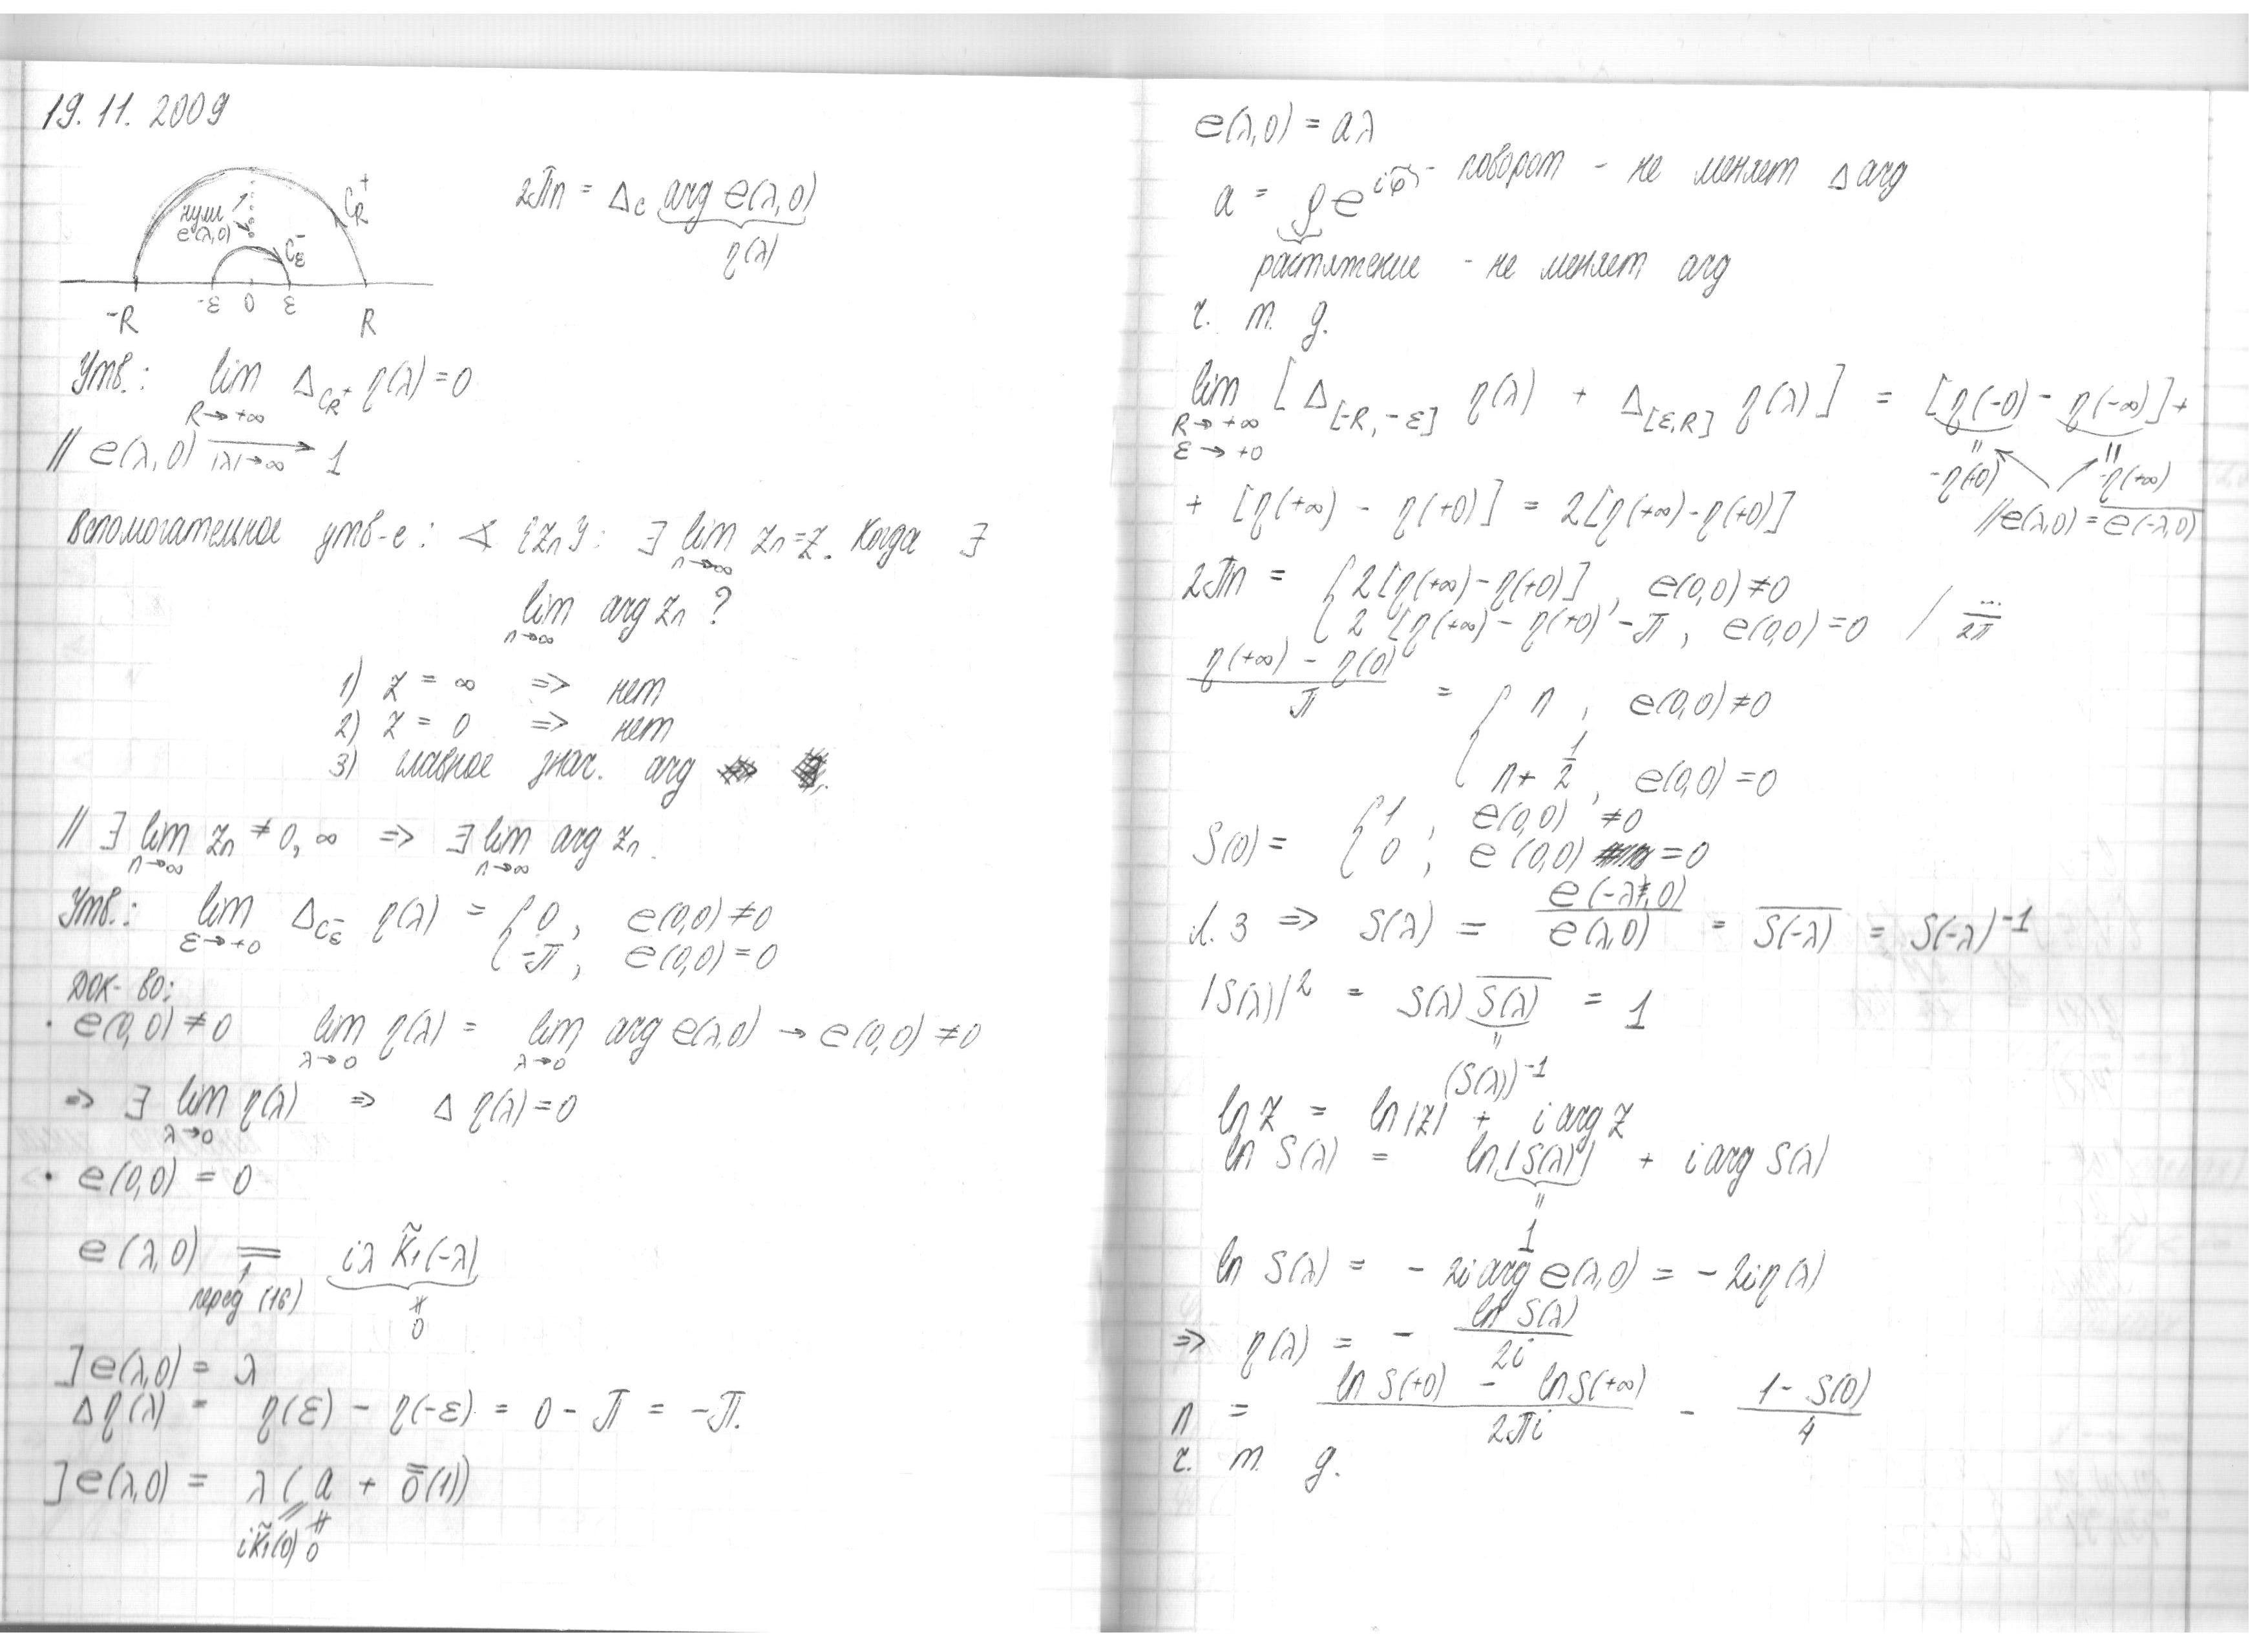 19. 11. 2009
нули e(λ,0)
C_R^+
C_ε^-
-R -ε 0 ε R
2πn = Δ_C arg e(λ,0)
η(λ)
Утв.: lim_{R→+∞} Δ_{C_R^+} η(λ) = 0
// e(λ,0) →_{|λ|→∞} 1
Вспомогательное утв-е: ∢ {z_n}: ∃ lim_{n→∞} z_n = z. Когда ∃
lim_{n→∞} arg z_n ?
1) z = ∞ => нет
2) z = 0 => нет
3) главное знач. arg
// ∃ lim_{n→∞} z_n ≠ 0, ∞ => ∃ lim_{n→∞} arg z_n.
Утв.: lim_{ε→+0} Δ_{C_ε^-} η(λ) = { 0, e(0,0) ≠ 0
-π, e(0,0) = 0
Док-во:
· e(0,0) ≠ 0 lim_{λ→0} η(λ) = lim_{λ→0} arg e(λ,0) → e(0,0) ≠ 0
=> ∃ lim_{λ→0} η(λ) => Δ η(λ) = 0
· e(0,0) = 0
e(λ,0) = iλ K̃₁(-λ)
перед (16) ≠ 0
] e(λ,0) = λ
Δ η(λ) = η(ε) - η(-ε) = 0 - π = -π.
] e(λ,0) = λ ( a + o̿(1))
iK̃₁(0) ≠ 0
e(λ,0) = aλ
a = ρ e^{iφ} - поворот - не меняет Δ arg
растяжение - не меняет arg
ч. т. д.
lim_{R→+∞, ε→+0} [ Δ_{[-R,-ε]} η(λ) + Δ_{[ε,R]} η(λ) ] = [η(-0) - η(-∞)] +
-η(+0) -η(+∞)
+ [η(+∞) - η(+0)] = 2[η(+∞) - η(+0)] // e(λ,0) = \overline{e(-λ,0)}
2πn = { 2[η(+∞) - η(+0)], e(0,0) ≠ 0
2 [η(+∞) - η(+0)] - π, e(0,0) = 0 / …/2π
(η(+∞) - η(0))/π = { n, e(0,0) ≠ 0
n + 1/2, e(0,0) = 0
S(0) = { 1, e(0,0) ≠ 0
0, e(0,0) = 0
Л. 3 => S(λ) = e(-λ,0)/e(λ,0) = \overline{S(-λ)} = S(-λ)^{-1}
|S(λ)|² = S(λ) \overline{S(λ)} = 1
(S(λ))^{-1}
ln z = ln|z| + i arg z
ln S(λ) = ln|S(λ)| + i arg S(λ)
1
ln S(λ) = - 2i arg e(λ,0) = - 2iη(λ)
=> η(λ) = - ln S(λ)/2i
n = (ln S(+0) - ln S(+∞))/2πi - (1 - S(0))/4
ч. т. д.